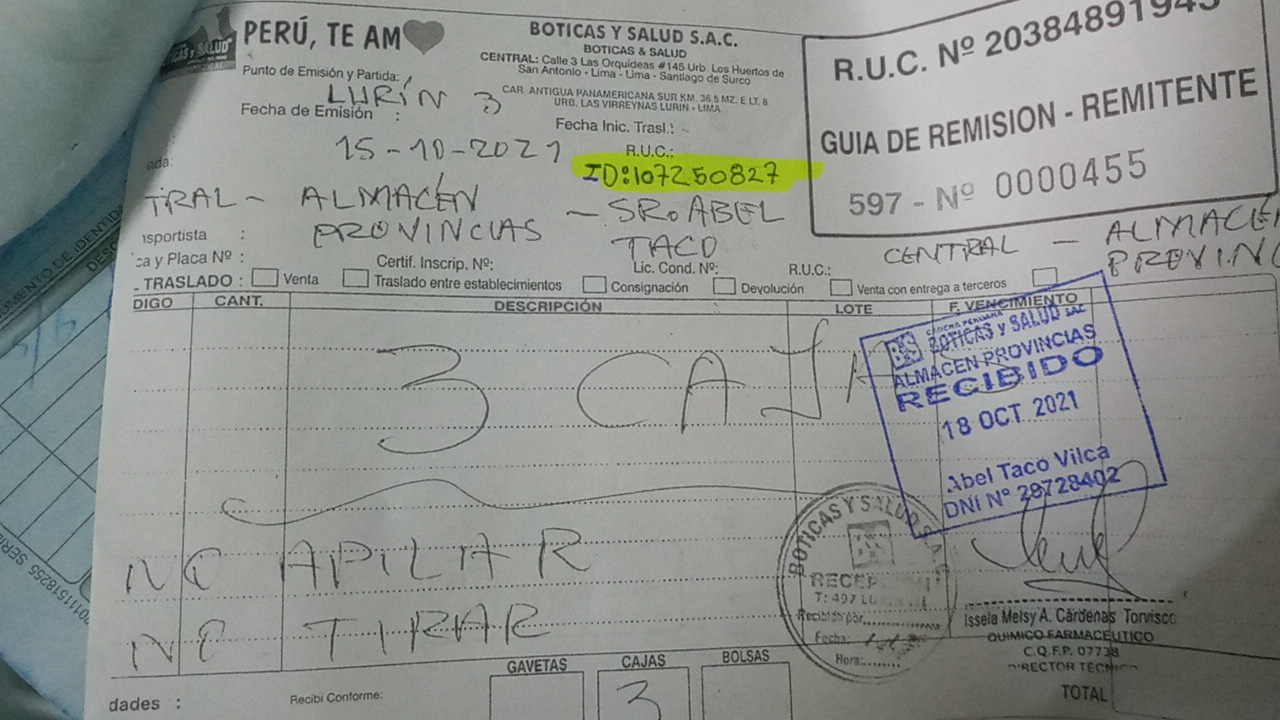 PERÚ, TE AM
Punto de Emisión y Partida:
LURÍN 3
Fecha de Emisión :
15-10-2021
BOTICAS Y SALUD S.A.C.
BOTICAS & SALUD
CENTRAL: Calle 3 Las Orquídeas #145 Urb. Los Huertos de
San Antonio - Lima - Lima - Santiago de Surco
CAR. ANTIGUA PANAMERICANA SUR KM. 36.5 MZ. E LT. 8
URB. LAS VIRREYNAS LURIN - LIMA
Fecha Inic. Trasl.:
R.U.C.:
ID:107250827
R.U.C. Nº 20384891943
GUIA DE REMISION - REMITENTE
597 - Nº 0000455
ada:
TRAL - ALMACÉN PROVINCIAS - SR. ABEL TACO
CENTRAL - ALMACE
PROVINC
nsportista :
ca y Placa Nº :
Certif. Inscrip. Nº:
Lic. Cond. Nº:
R.U.C.:
TRASLADO : Venta Traslado entre establecimientos Consignación Devolución Venta con entrega a terceros
DIGO CANT. DESCRIPCIÓN LOTE F. VENCIMIENTO
3 CAJA
BS
BOTICAS y SALUD SAC
ALMACEN PROVINCIAS
RECIBIDO
18 OCT. 2021
Abel Taco Vilca
DNI Nº 29728402
NO APILAR
NO TIRAR
BOTICAS Y SALUD S.A.C.
Recibido por:
Fecha:
Hora:
Issela Melsy A. Cárdenas Torvisco
QUIMICO FARMACEUTICO
C.Q.F.P. 07738
DIRECTOR TECNIC
GAVETAS CAJAS BOLSAS
3
dades :
Recibí Conforme:
TOTAL